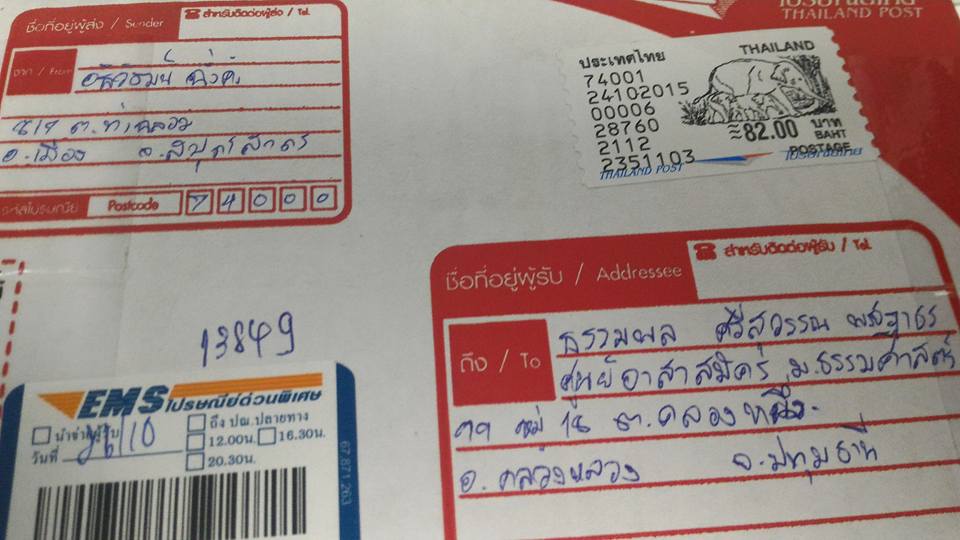 ชื่อที่อยู่ผู้ส่ง / Sender
สำหรับติดต่อผู้ส่ง / Tel.
จาก / From
ต. ท่าฉลอม
อ. เมือง จ. สมุทรสาคร
รหัสไปรษณีย์ Postcode 74000
ไปรษณีย์ไทย
THAILAND POST
ประเทศไทย THAILAND
74001
24102015
00006
28760
2112
2351103
≈82.00 บาท
BAHT
POSTAGE
THAILAND POST ไปรษณีย์ไทย
ชื่อที่อยู่ผู้รับ / Addressee
สำหรับติดต่อผู้รับ / Tel.
ถึง / To
ธรรมพล ศรีสุวรรณ
ศูนย์อาสาสมัคร ม.ธรรมศาสตร์
99 หมู่ 18 ต.คลองหนึ่ง
อ. คลองหลวง จ. ปทุมธานี
13849
EMS ไปรษณีย์ด่วนพิเศษ
นำจ่ายผู้รับ
วันที่ 26/10
ถึง ปณ.ปลายทาง
12.00น. 16.30น.
20.30น.
67 871 263